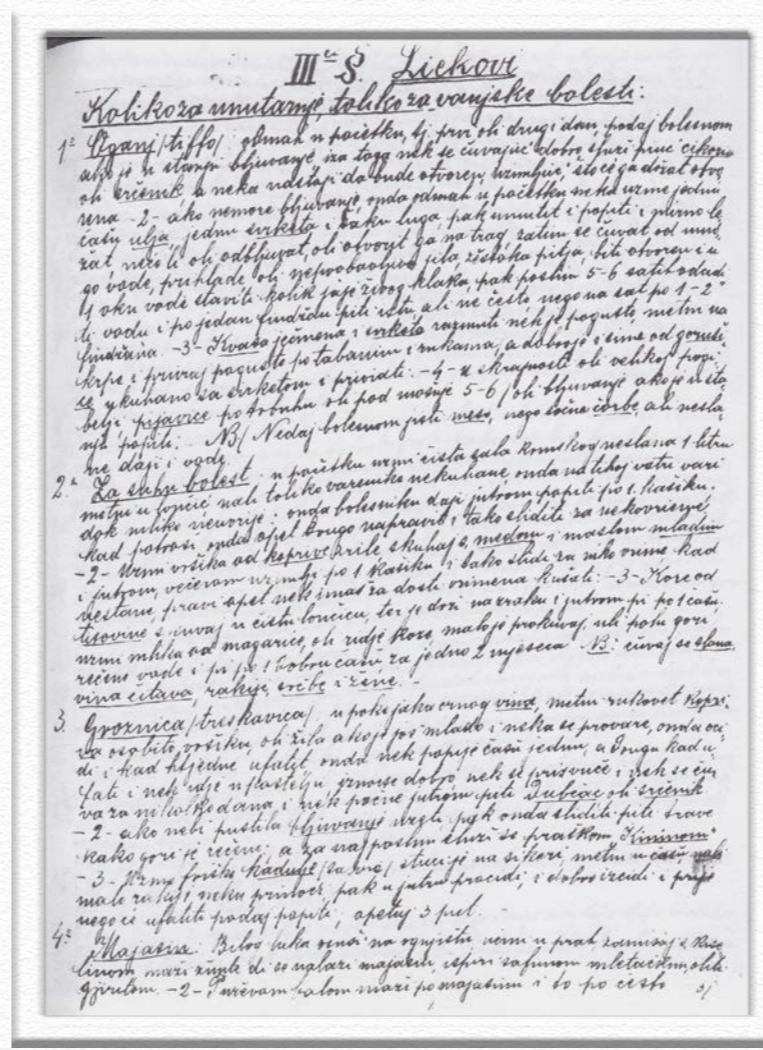 III S. Liekovi
Koliko za unutarnje, toliko za vanjske bolesti:
1º Oganj /tiffo/ odmah u početku, tj. prvi oli drugi dan, podaj bolesnom
ako je u stanju bljuvanje iza toga nek se čuvajuć dobro služi piuć
oli srčenik a neka nastoji da bude otvoren,
rena -2- ako nemore bljuvanje, onda odmah u početku neka uzme jednu
čašu ulja, jednu svrketa i šaku luga, pak umutit i popiti i mirno le
žat, neće li oli odbljuvat, oli otvorit ga na trag. zatim se čuvat od mno
go vode, prihlade oli jela, pitja, biti otvoren i u
1 oku vode staviti kolik jaje živog klaka, pak poslim 5-6 satih
ti vodu i po jedan findžan piti istu ali ne često, nego na sat po 1-2
findžana. -3- Kvasa ječmena i svrketa razmuti nek je pogusto, metni na
krpe i privraj pogusto po tabanim i rukama, a dobro je i sime od goruši
ce ukuhano sa svrketom i prividti: -4- u skrajnosti oli velikoj pogi
belji, pijavice po trbuhu oli pod mošnje 5-6 /oli bljuvanje ako je u sta
nju popiti. NB/ Nedaj bolesnom jisti meso, nego sočne čorbe, ali nesla
ne daji i vode.
2º Za suhu bolest u početku uzmi čista sala krmskog neslana 1 litru
metni u lončić nali toliko varenike nekuhane, onda na tihoj vatri vari
dok mliko neuvrije, onda bolesniku daji jutrom popiti po 1 kašiku.
kad potrosi onda opet drugo napravit i tako sliditi za
-2- Uzmi vršika od koprive skuhaj s medom i maslom mladim
i jutrom, večerom uzimlji po 1 kašiku i tako slidi za niko vrime kad
nestane, pravi opet nek imaš za dosti vrimena kušati: -3- Kore od
tisovine s u čistu lončicu, ter je drži na zraku i jutrom pi po 1 čašu.
uzmi mlika od magarice, oli ridje koze, malo je prokuvaj, uli polu gori
rečene vode i pi po 1 dobru čašu za jedno 2 mjeseca NB: čuvaj se slana,
vina, rakije, srčbe i žene. -
3. Groznica /treskavica/ u pol crnog vina, metni rukovet kopri
va osobito, vršiku, oli žila ako je još mlado i neka se provare, onda oci
di i kad htjedne ufatit onda nek popije čašu jednu, a drugu kad u
fati i nek idje u postelju, iznoji se dobro, nek se prisvuče i nek se ču
va za nikoliko dana i nek počne jutrom piti Dubčac oli srčenik.
-2- ako nebi pustila bljuvanje uzeti pak onda sliditi piti trave
kako gori je rečeno; a za naj poslim služi se praškom "Kininom"
-3- Uzmi friške kadulje stuci je na sikeri, metni u čašu, nali
malo rakije, neka prinoći, pak u jutro procidi, i dobro izcidi i prije
nego će ufatiti podaj popiti, opetuj 3 put.
4º Majasin: Bilog luka na ognjištu uzmi u prah, s kise
linom mazi di se nalazi majasin, isperi safunom mletačkim, oliti
-2- Purževom salom mazi po majasinu i to po često